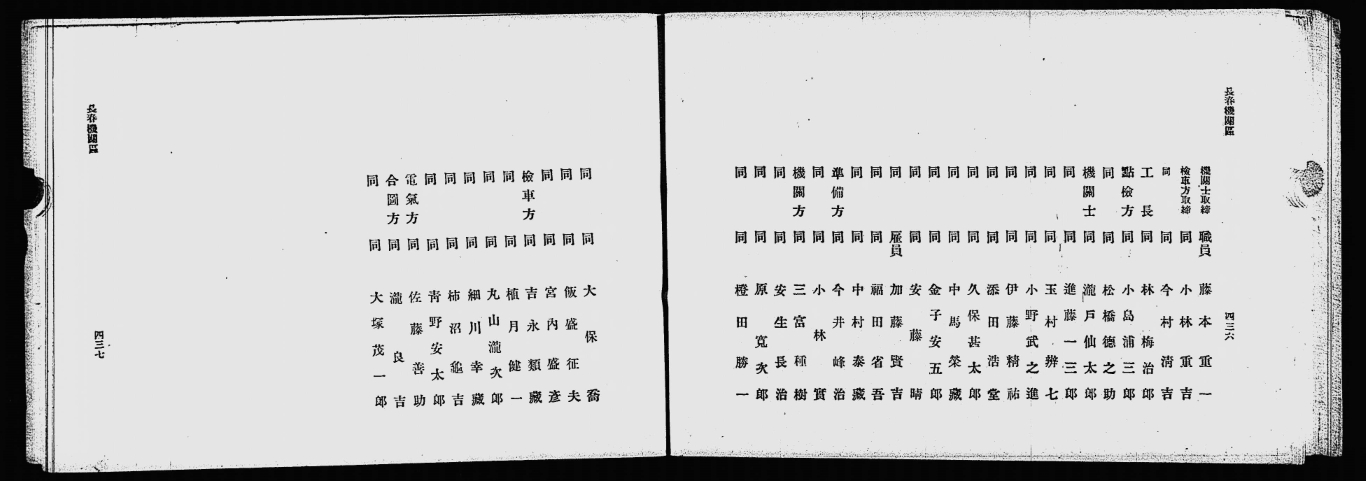 長春機關區
機關士取締 職員 藤本重一
檢車方取締 同 小林重吉
同 同 今村淸吉
工長 同 林梅治郎
點檢方 同 小島浦三郎
同 同 松橋德之助
機關士 同 瀧戶仙太郎
同 同 進藤一三郎
同 同 玉村辨七
同 同 小野武之進
同 同 伊藤精祐
同 同 添田浩堂
同 同 久保甚太郎
同 同 中馬榮藏
同 同 金子安五郎
同 同 安藤晴
同 雇員 加藤賢吉
同 同 福田省吾
同 同 中村泰藏
準備方 同 今井峰治
同 同 小林實
機關方 同 三富種樹
同 同 安生長治
同 同 原寬次郎
同 同 橙田勝一
四三六
同 同 大保喬
同 同 飯盛征夫
同 同 宮內盛彥
檢車方 同 吉永類藏
同 同 植月健一
同 同 丸山瀧次郎
同 同 細川幸藏
同 同 柿沼龜吉
同 同 靑野安太郎
電氣方 同 佐藤善助
合圖方 同 瀧良吉
同 同 大塚茂一郎
長春機關區
四三七